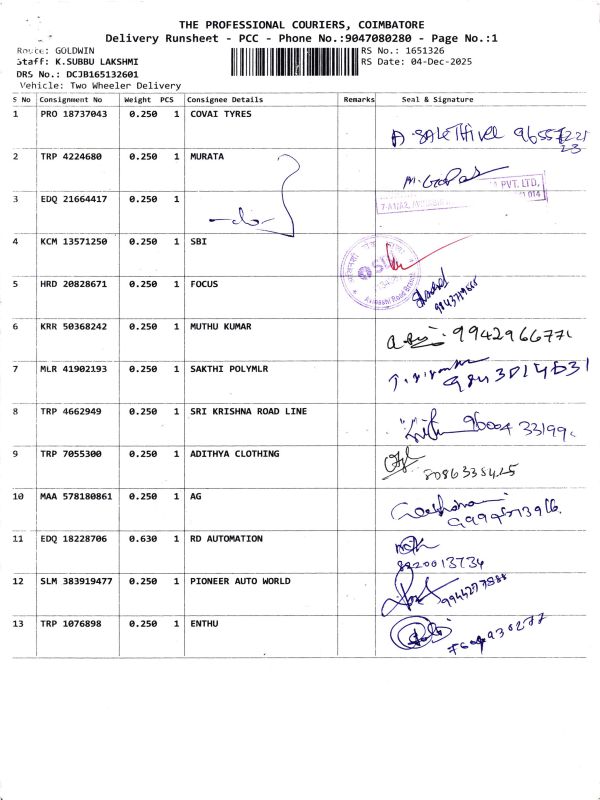 THE PROFESSIONAL COURIERS, COIMBATORE
Delivery Runsheet - PCC - Phone No.:9047080280 - Page No.:1
Route: GOLDWIN RS No.: 1651326
Staff: K.SUBBU LAKSHMI RS Date: 04-Dec-2025
DRS No.: DCJB165132601
Vehicle: Two Wheeler Delivery
S No Consignment No Weight PCS Consignee Details Remarks Seal & Signature
1 PRO 18737043 0.250 1 COVAI TYRES
2 TRP 4224680 0.250 1 MURATA
PVT. LTD,
3 EDQ 21664417 0.250 1 -do-
4 KCM 13571250 0.250 1 SBI
5 HRD 20828671 0.250 1 FOCUS
6 KRR 50368242 0.250 1 MUTHU KUMAR
7 MLR 41902193 0.250 1 SAKTHI POLYMLR
8 TRP 4662949 0.250 1 SRI KRISHNA ROAD LINE 96004 33199
9 TRP 7055300 0.250 1 ADITHYA CLOTHING
10 MAA 578180861 0.250 1 AG
11 EDQ 18228706 0.630 1 RD AUTOMATION
8220013734
12 SLM 383919477 0.250 1 PIONEER AUTO WORLD
13 TRP 1076898 0.250 1 ENTHU